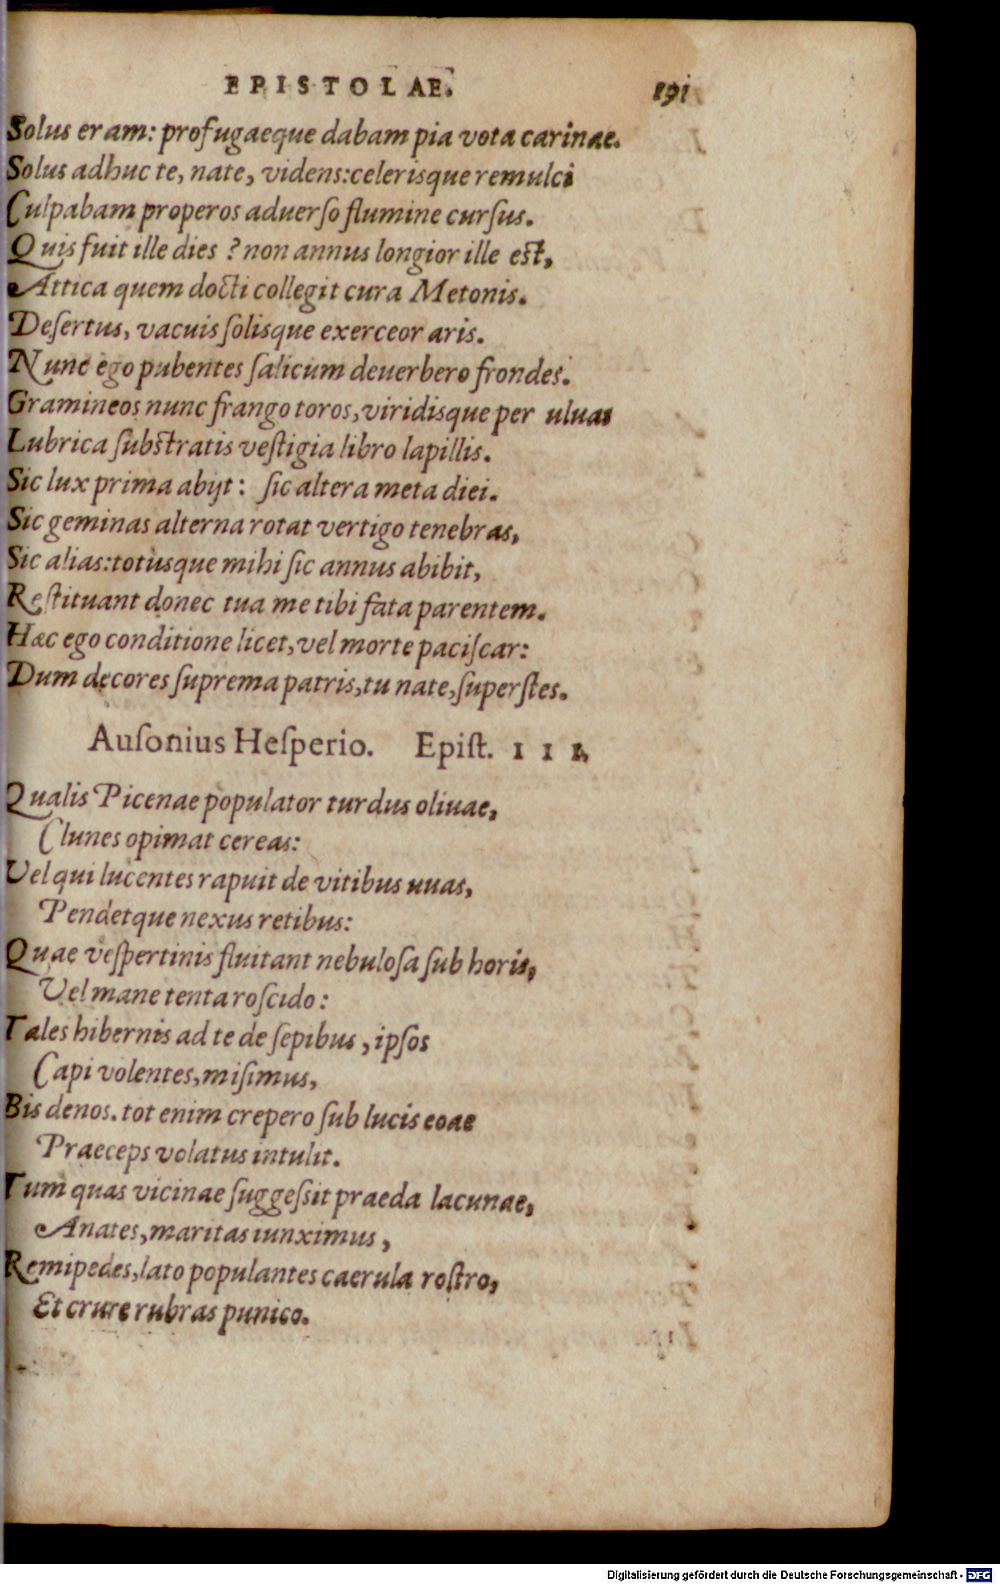 EPISTOLAE. 191
Solus eram: profugaeque dabam pia vota carinae.
Solus adhuc te, nate, videns: celerisque remulci
Culpabam properos aduerſo flumine curſus.
Quis fuit ille dies? non annus longior ille eſt,
Attica quem docti collegit cura Metonis.
Deſertus, vacuis ſolisque exerceor aris.
Nunc ego pubentes ſalicum deuerbero frondes.
Gramineos nunc frango toros, viridisque per uluas
Lubrica ſubſtratis veſtigia libro lapillis.
Sic lux prima abijt: ſic altera meta diei.
Sic geminas alterna rotat vertigo tenebras,
Sic alias: totusque mihi ſic annus abibit,
Reſtituant donec tua me tibi fata parentem.
Hac ego conditione licet, vel morte paciſcar:
Dum decores ſuprema patris, tu nate, ſuperſtes.
Auſonius Heſperio. Epiſt. III.
Qualis Picenae populator turdus oliuae,
Clunes opimat cereas:
Vel qui lucentes rapuit de vitibus uuas,
Pendetque nexus retibus:
Quae veſpertinis fluitant nebuloſa ſub horis,
Vel mane tenta roſcido:
Tales hibernis ad te de ſepibus, ipſos
Capi volentes, miſimus,
Bis denos. tot enim crepero ſub lucis eoae
Praeceps volatus intulit.
Tum quas vicinae ſuggeſsit praeda lacunae,
Anates, maritas iunximus,
Remipedes, lato populantes caerula roſtro,
Et crure rubras punico.
Digitalisierung gefördert durch die Deutsche Forschungsgemeinschaft - DFG